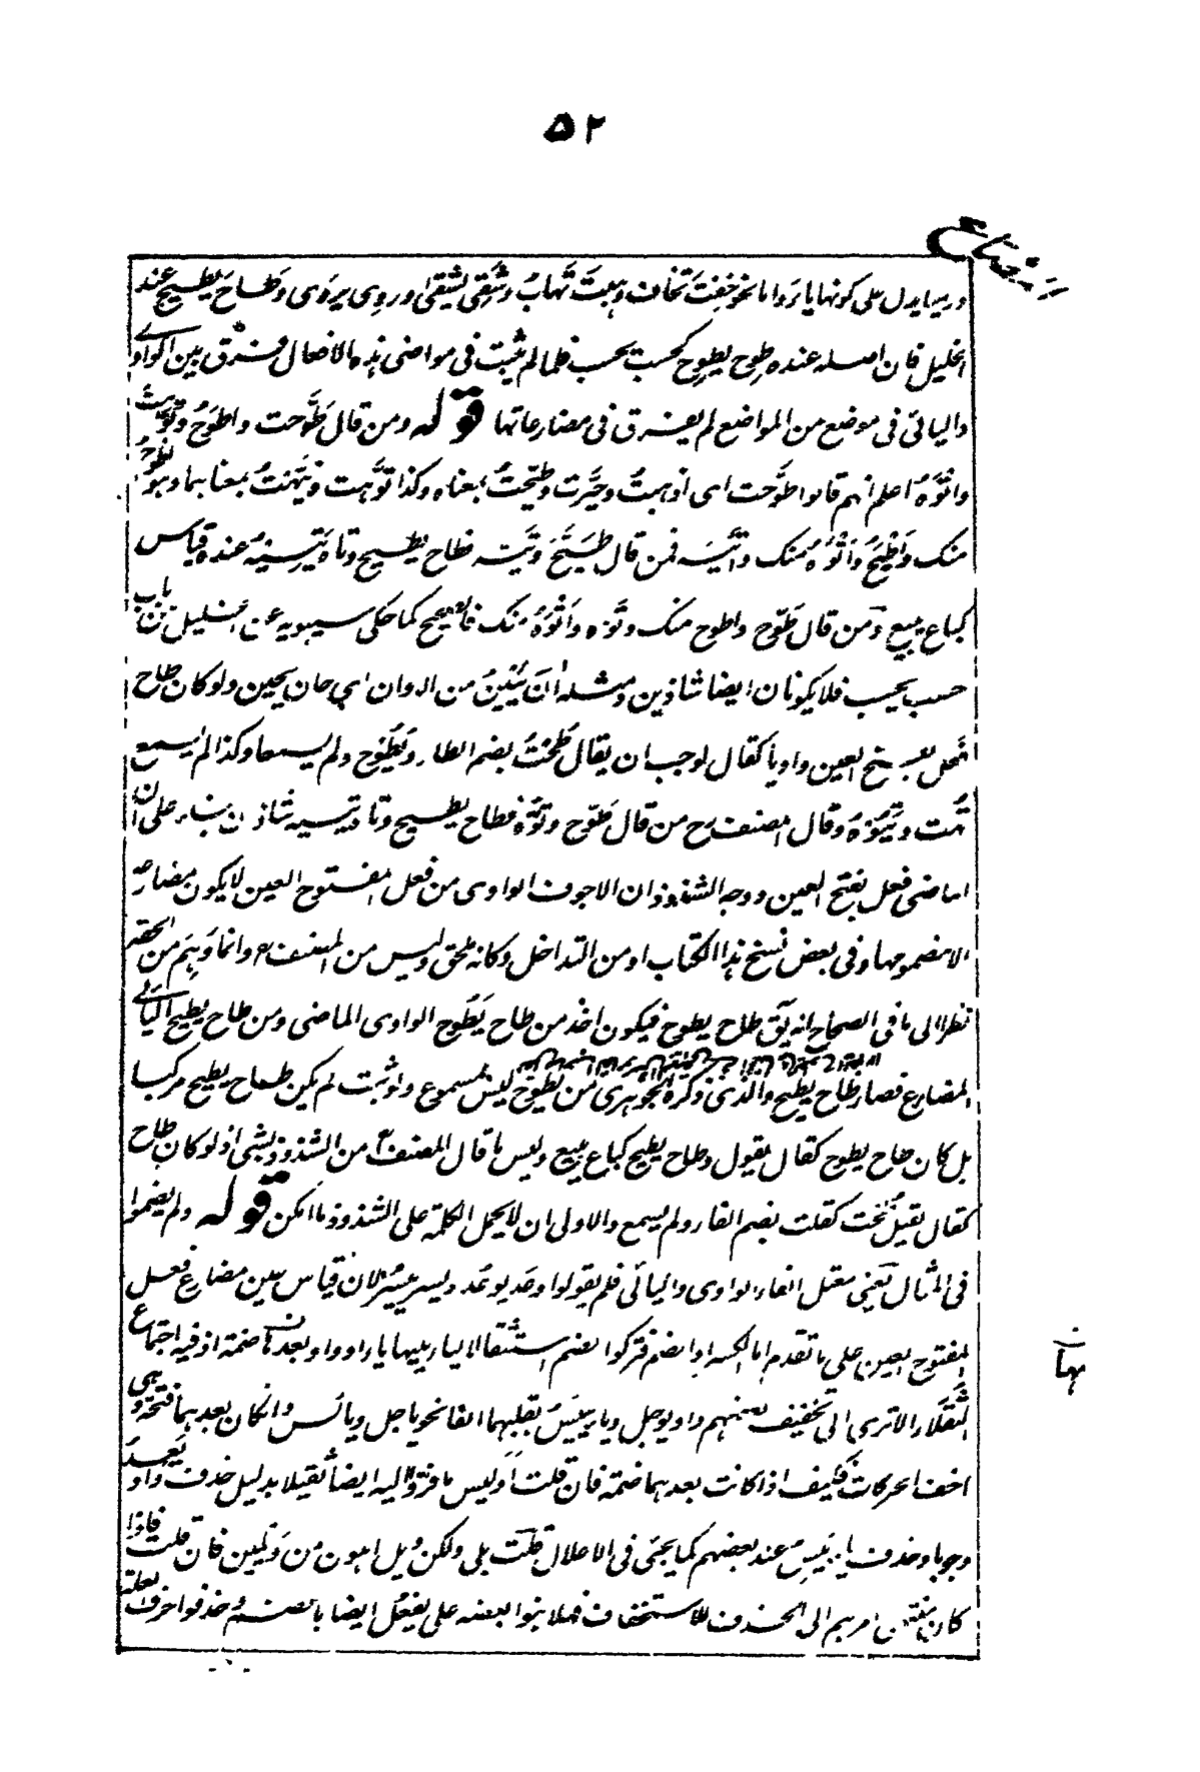 ٥٢
وربما يدل على كونها ياء او واوا نحو خِفتَ تخاف وهِبتَ تَهابُ وشَقِىَ يشقى وروِى يروَى وطاحَ يطيح عند
الخليل فان اصله عنده طوِح يطوِح كحسب يحسب فلما لم يثبت فى مواضى هذه الافعال فرق بين الواوى
واليائى فى موضع من المواضع لم يفرق فى مضارعاتها قوله ومن قال طَوَّحت واطوَحُ وتوّهت
واتْوَهُ اعلم انهم قالوا طوَّحت اى اذهبتُ وحيَّرت وطيّحتُ بمعناه وكذا توّهت وتيَّهتُ بمعناهما وهو اطوح
منك واَطيَحُ واَتْوَهُ منك واَتيَه فمن قال طَيَّحَ وتيَّه فطاح يطيح وتاه يَتِيهُ عنده قياس
كباع يبيع ومن قال طوّح واطوح منك وتوّه واَتْوَهُ منك فالصحيح كما حكى سيبويه عن الخليل من باب
حسب يحسب فلا يكونان ايضا شاذين ومثله آنَ يئينُ من الاوان اى حان يحين ولو كان طاح
فعل بفتح العين واويا كقال لوجب ان يقال طُحْتُ بضم الطاء ويَطُوح ولم يسمعا وكذا لم يسمع
تُهت ويَتُوهُ وقال المصنف رح من قال طوّح وتوّه فطاح يطيح وتاه يتيه شاذان بناء على ان
الماضى فعل بفتح العين ووجه الشذوذ ان الاجوف الواوى من فعل المفتوح العين لا يكون مضارعه
الا مضمومها وفى بعض نسخ هذا الكتاب او من التداخل وكانه ملحق وليس من المصنف وانما وَهِمَ من الحقه
نظرا الى ما فى الصحاح انه يق طاح يطوح فيكون اخذ من طاح يَطُوح الواوى الماضى ومن طاح يطيح اليائى
المضارع فصار طاح يطيح والذى ذكره الجوهرى من يَطُوح ليس بمسموع ولو ثبت لم يكن طاح يطيح مركبا
بل كان طاح يطوح كقال يقول وطاح يطيح كباع يبيع وليس ما قال المصنف من الشذوذ بشى اذ لو كان طاح
كقال لقيل طُحت كقلت بضم الفاء ولم يسمع والاولى ان لا يحمل الكلمة على الشذوذ ما امكن قوله ولم يضموا
فى المثال يعنى معتل الفاء الواوى واليائى فلم يقولوا وعد يوعُد ويسر ييسُر لان قياس عين مضارع فعل
المفتوح العين على ما تقدم اما الكسر او الضم فتركوا الضم استثقالا لياء يليها ياء او واو بعدها ضمة اذ فيه اجتماع
الثقلاء الا ترى الى تخفيف بعضهم واو يوجل وياء ييئس بقلبهما الفا نحو ياجل ويائس وان كان بعدهما فتحة وهى
اخف الحركات فكيف اذا كانت بعدهما ضمة فان قلت اَوليس ما فروا اليه ايضا ثقيلا بدليل حذف واو يعد
وجوبا وحذف ياء ييئس عند بعضهم كما يجئ فى الاعلال قلت بلى ولكن ويل اهون من ويلين فان قلت فاذا
كان منتهى امرهم الى الحذف للاستخفاف فهلا بنوا بعضه على يفعُل ايضا بالضم وحذفوا حرف العلة